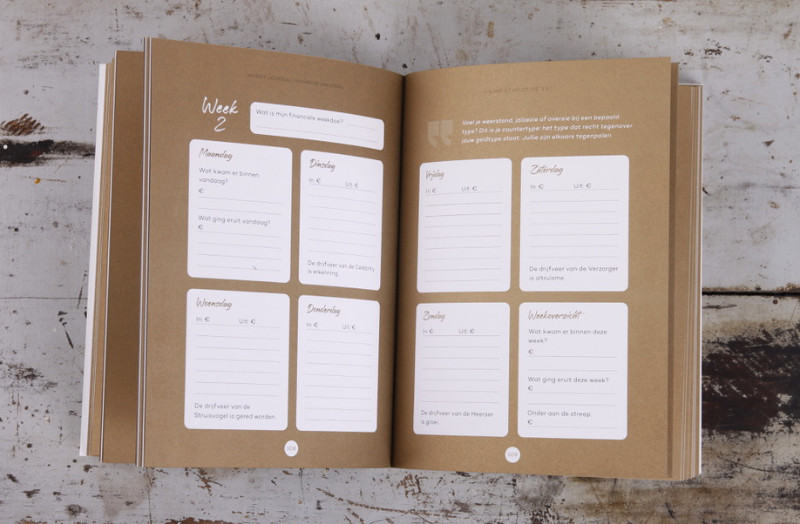 Week
2
Wat is mijn financiële weekdoel?
Maandag
Wat kwam er binnen
vandaag?
€
Wat ging eruit vandaag?
€
Dinsdag
In € Uit €
De drijfveer van de Celebrity
is erkenning.
Woensdag
In € Uit €
De drijfveer van de
Struisvogel is gered worden.
Donderdag
In € Uit €
Voel je weerstand, jaloezie of aversie bij een bepaald
type? Dit is je countertype: het type dat recht tegenover
jouw geldtype staat. Jullie zijn elkaars tegenpolen.
Vrijdag
In € Uit €
Zaterdag
In € Uit €
De drijfveer van de Verzorger
is altruïsme.
Zondag
In € Uit €
De drijfveer van de Heerser
is groei.
Weekoverzicht
Wat kwam er binnen deze
week?
€
Wat ging eruit deze week?
€
Onder aan de streep:
€